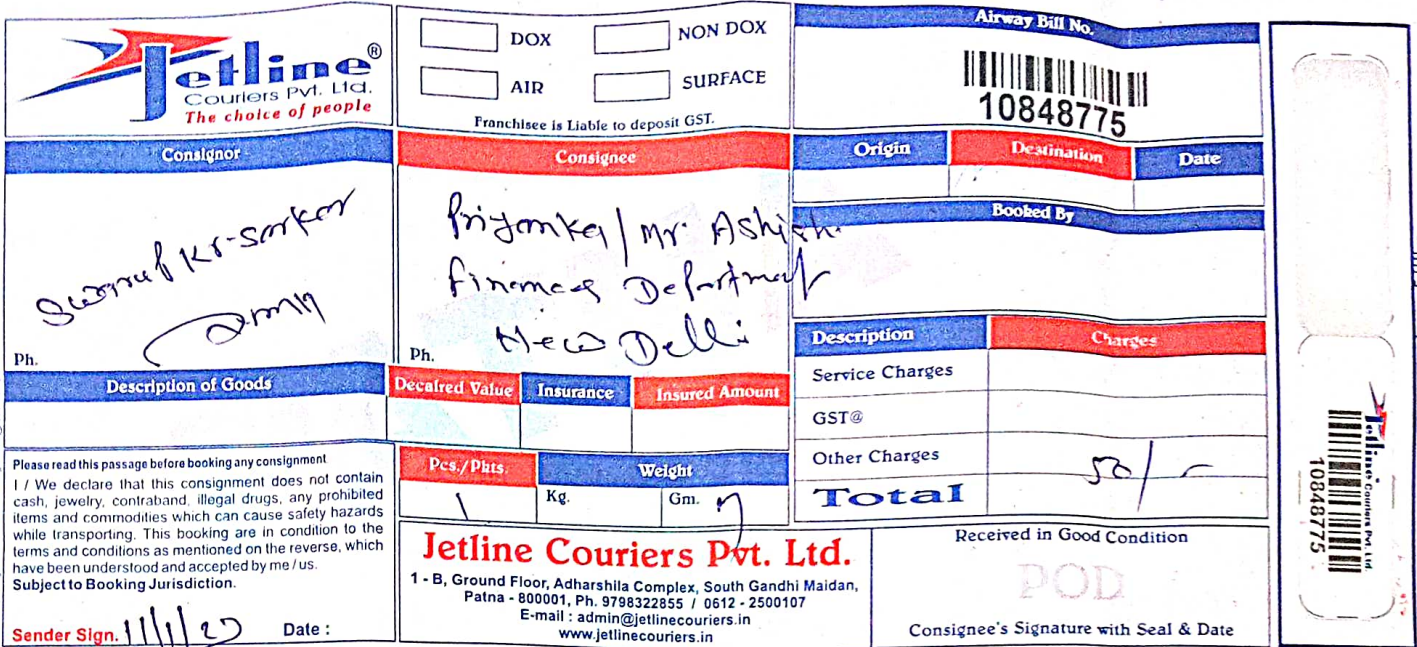 Jetline®
Couriers Pvt. Ltd.
The choice of people
DOX
NON DOX
AIR
SURFACE
Franchisee is Liable to deposit GST.
Airway Bill No.
10848775
Consignor
Kr. Sarkar
Ph.
Consignee
Priyanka / Mr. Ashish
Finance Department
New Delhi
Ph.
Origin
Destination
Date
Booked By
Description of Goods
Decalred Value
Insurance
Insured Amount
Description
Charges
Service Charges
GST@
Other Charges
Total
50/-
Please read this passage before booking any consignment
I / We declare that this consignment does not contain
cash, jewelry, contraband, illegal drugs, any prohibited
items and commodities which can cause safety hazards
while transporting. This booking are in condition to the
terms and conditions as mentioned on the reverse, which
have been understood and accepted by me / us.
Subject to Booking Jurisdiction.
Sender Sign.
Date :
Pcs./Pkts.
1
Weight
Kg.
Gm.
Jetline Couriers Pvt. Ltd.
1 - B, Ground Floor, Adharshila Complex, South Gandhi Maidan,
Patna - 800001, Ph. 9798322855 / 0612 - 2500107
E-mail : admin@jetlinecouriers.in
www.jetlinecouriers.in
Received in Good Condition
POD
Consignee's Signature with Seal & Date
Jetline Couriers Pvt. Ltd.
10848775